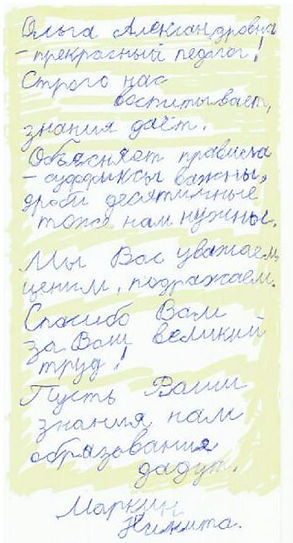 Ольга Александровна
- прекрасный педагог!
Строго нас
воспитывает,
знания даёт.
Объясняет правила
- суффиксы важны,
дроби десятичные
тоже нам нужны.
Мы Вас уважаем,
ценим, подражаем.
Спасибо Вам
за Ваш великий
труд!
Пусть Ваши
знания нам
образования
дадут.
Маркин
Никита.